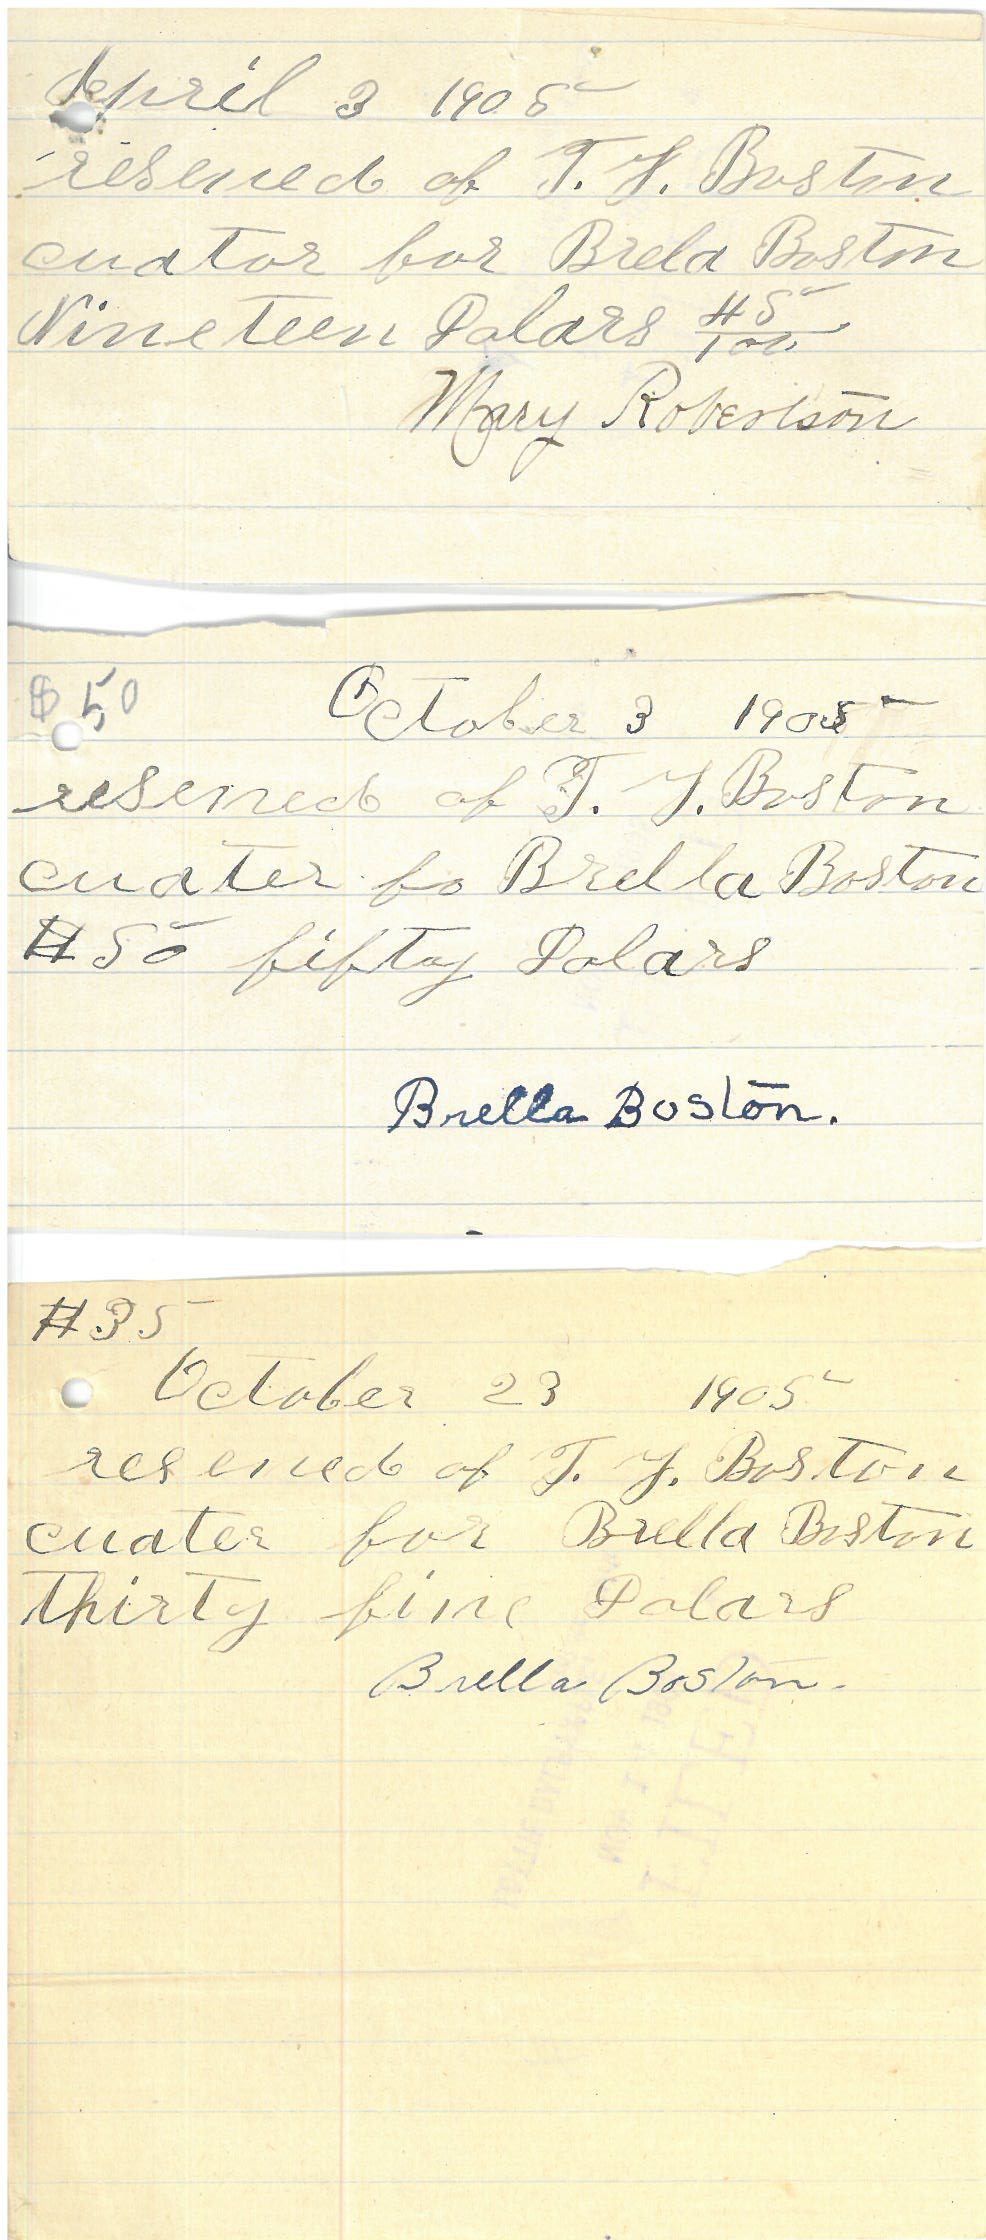 April 3 1905
reseived of T. Y. Boston
cuator for Brela Boston
Nineteen Dolars 45/100
Mary Robertson
$50 October 3 1905
reseived of T. Y. Boston
cuater fo Brella Boston
#50 fifty Dolars
Brella Boston.
#35
October 23 1905
reseived of T. Y. Boston
cuater for Brella Boston
thirty five Dolars
Brella Boston.